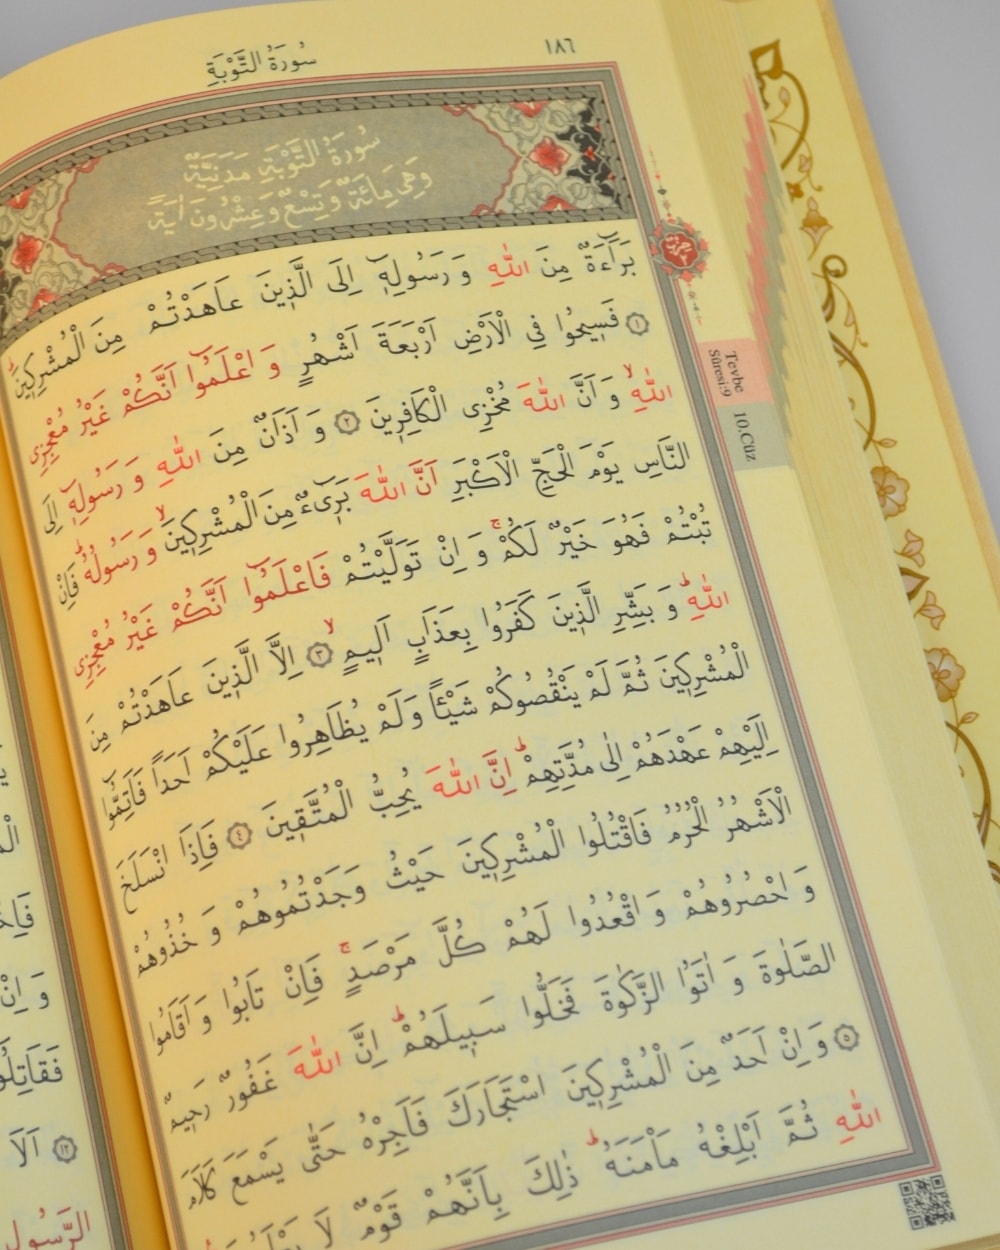 سُورَةُ التَّوْبَةِ
١٨٦
سُورَةُ التَّوْبَةِ مَدَنِيَّةٌ
وَهِيَ مِائَةٌ وَتِسْعٌ وَعِشْرُونَ اٰيَةً
بَرَٓاءَةٌ مِنَ اللّٰهِ وَرَسُولِهٖٓ اِلَى الَّذٖينَ عَاهَدْتُمْ مِنَ الْمُشْرِكٖينَؕ
﴿١﴾ فَسٖيحُوا فِي الْاَرْضِ اَرْبَعَةَ اَشْهُرٍ وَاعْلَمُٓوا اَنَّكُمْ غَيْرُ مُعْجِزِي
اللّٰهِۙ وَاَنَّ اللّٰهَ مُخْزِي الْكَافِرٖينَ ﴿٢﴾ وَاَذَانٌ مِنَ اللّٰهِ وَرَسُولِهٖٓ اِلَى
النَّاسِ يَوْمَ الْحَجِّ الْاَكْبَرِ اَنَّ اللّٰهَ بَرٖٓيءٌ مِنَ الْمُشْرِكٖينَۙ وَرَسُولُهُؕ فَاِنْ
تُبْتُمْ فَهُوَ خَيْرٌ لَكُمْۚ وَاِنْ تَوَلَّيْتُمْ فَاعْلَمُٓوا اَنَّكُمْ غَيْرُ مُعْجِزِي
اللّٰهِؕ وَبَشِّرِ الَّذٖينَ كَفَرُوا بِعَذَابٍ اَلٖيمٍۙ ﴿٣﴾ اِلَّا الَّذٖينَ عَاهَدْتُمْ مِنَ
الْمُشْرِكٖينَ ثُمَّ لَمْ يَنْقُصُوكُمْ شَيْـًٔا وَلَمْ يُظَاهِرُوا عَلَيْكُمْ اَحَدًا فَاَتِمُّٓوا
اِلَيْهِمْ عَهْدَهُمْ اِلٰى مُدَّتِهِمْؕ اِنَّ اللّٰهَ يُحِبُّ الْمُتَّقٖينَ ﴿٤﴾ فَاِذَا انْسَلَخَ
الْاَشْهُرُ الْحُرُمُ فَاقْتُلُوا الْمُشْرِكٖينَ حَيْثُ وَجَدْتُمُوهُمْ وَخُذُوهُمْ
وَاحْصُرُوهُمْ وَاقْعُدُوا لَهُمْ كُلَّ مَرْصَدٍۚ فَاِنْ تَابُوا وَاَقَامُوا
الصَّلٰوةَ وَاٰتَوُا الزَّكٰوةَ فَخَلُّوا سَبٖيلَهُمْؕ اِنَّ اللّٰهَ غَفُورٌ رَحٖيمٌ
﴿٥﴾ وَاِنْ اَحَدٌ مِنَ الْمُشْرِكٖينَ اسْتَجَارَكَ فَاَجِرْهُ حَتّٰى يَسْمَعَ كَلَامَ
اللّٰهِ ثُمَّ اَبْلِغْهُ مَأْمَنَهُؕ ذٰلِكَ بِاَنَّهُمْ قَوْمٌ لَا
Tevbe
Sûresi:9
10.Cüz
وَاِنْ
﴿١٢﴾ اَلَا
الرَّسُولِ